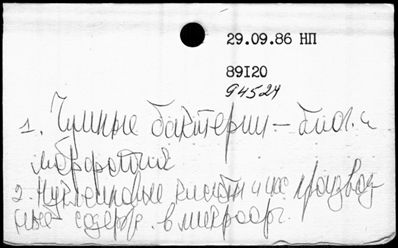 29.09.86 НП
89I20
94524
1. Чумные бактерии – биол. и
2. Нуклеиновые кислоты и их производ
ные содерж. в микроорг.